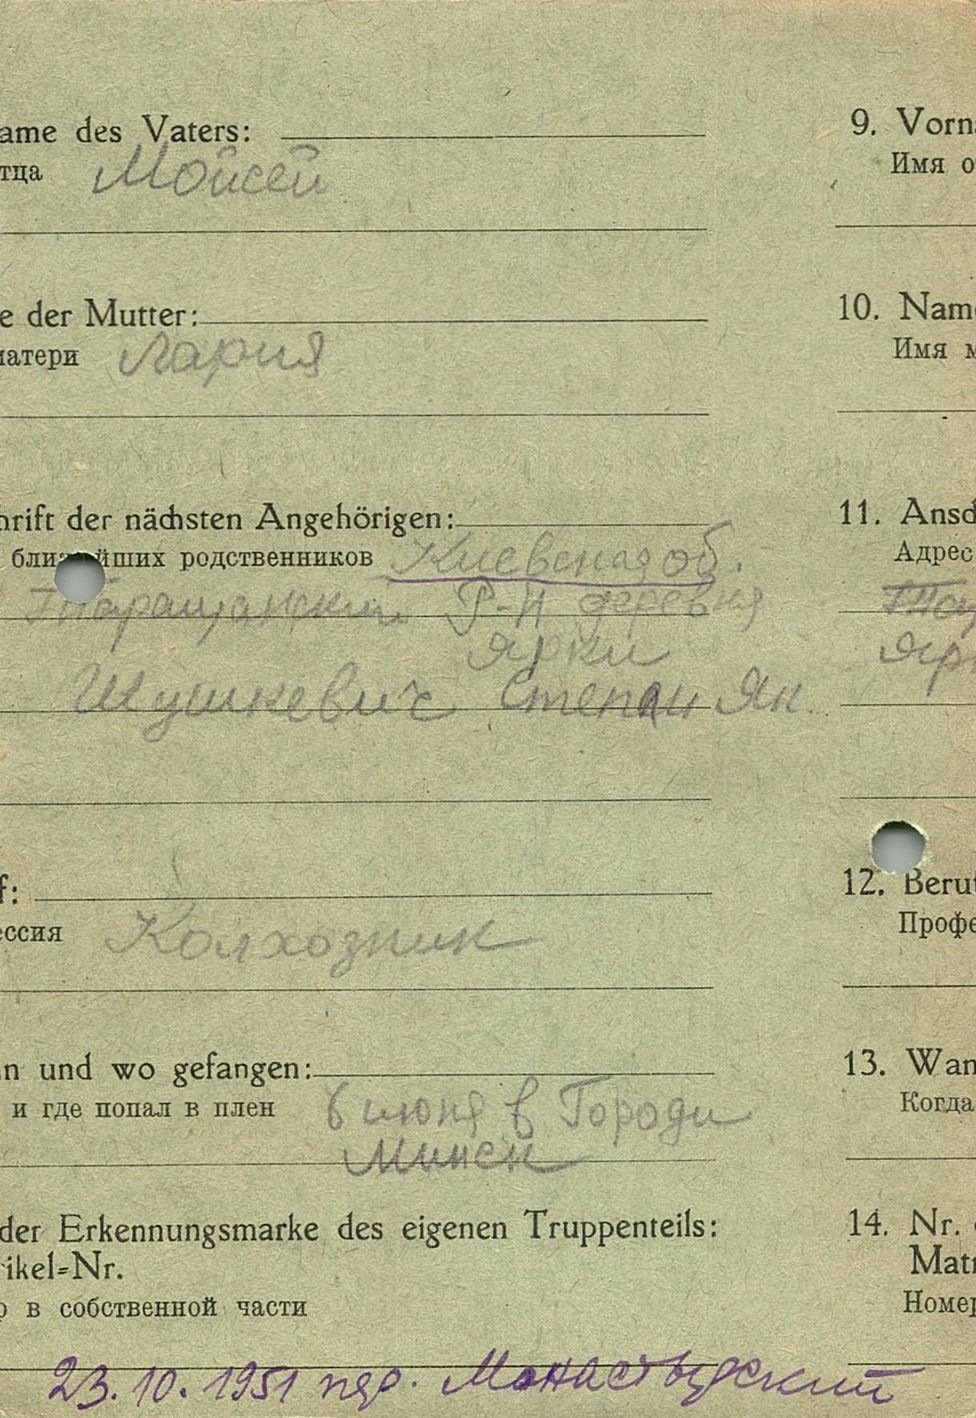 ame des Vaters:
тца Мойсей
e der Mutter:
матери Лария
hrift der nächsten Angehörigen:
ближайших родственников Киевская об.
Таращанский Р-Н деревня
Ярки
Шушкевич Степан Як.
f:
ессия Колхозник
n und wo gefangen:
и где попал в плен 6 июня в Городи
Минск
der Erkennungsmarke des eigenen Truppenteils:
ikel=Nr.
в собственной части
23.10.1951 пер. Монастырский
9. Vorn
Имя о
10. Nam
Имя м
11. Ansc
Адрес
Тар
Яр
12. Beru
Профе
13. Wan
Когда
14. Nr.
Mat
Номер